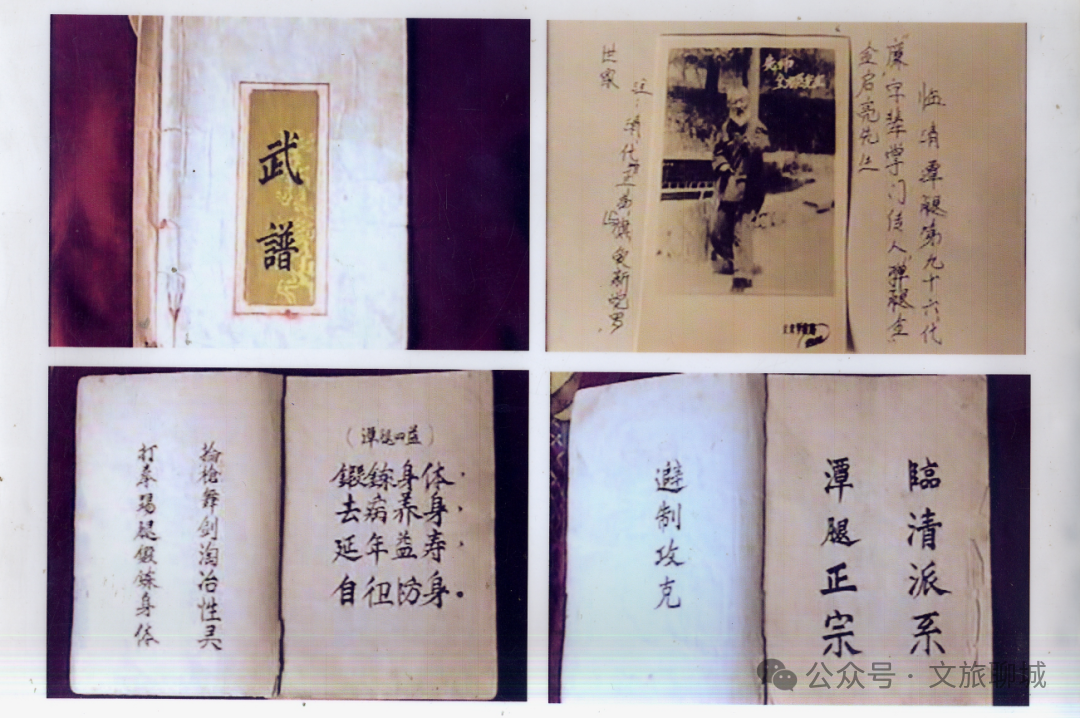 武譜
临清潭腿第九十六代
廉字辈学门传人弹腿金
金启亮先生
注:清代正旗爱新觉罗。
世家
(潭腿四益)
鍛鍊身体,
去病养身,
延年益寿,
自防身。
抡槍舞剑淘冶性灵
打拳踢腿鍛鍊身体
臨清派系
潭腿正宗
避制攻克
公众号 · 文旅聊城